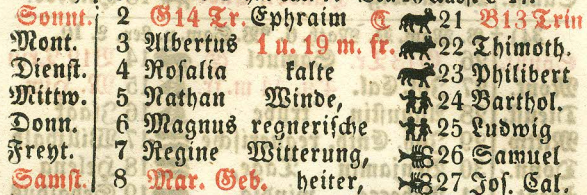 Sonnt. 2 G14 Tr. Ephraim 21 B13 Trin
Mont. 3 Albertus 1 u. 19 m. fr. 22 Thimoth.
Dienst. 4 Rosalia kalte 23 Philibert
Mittw. 5 Nathan Winde, 24 Barthol.
Donn. 6 Magnus regnerische 25 Ludwig
Freyt. 7 Regine Witterung, 26 Samuel
Samst. 8 Mar. Geb. heiter, 27 Jos Cal